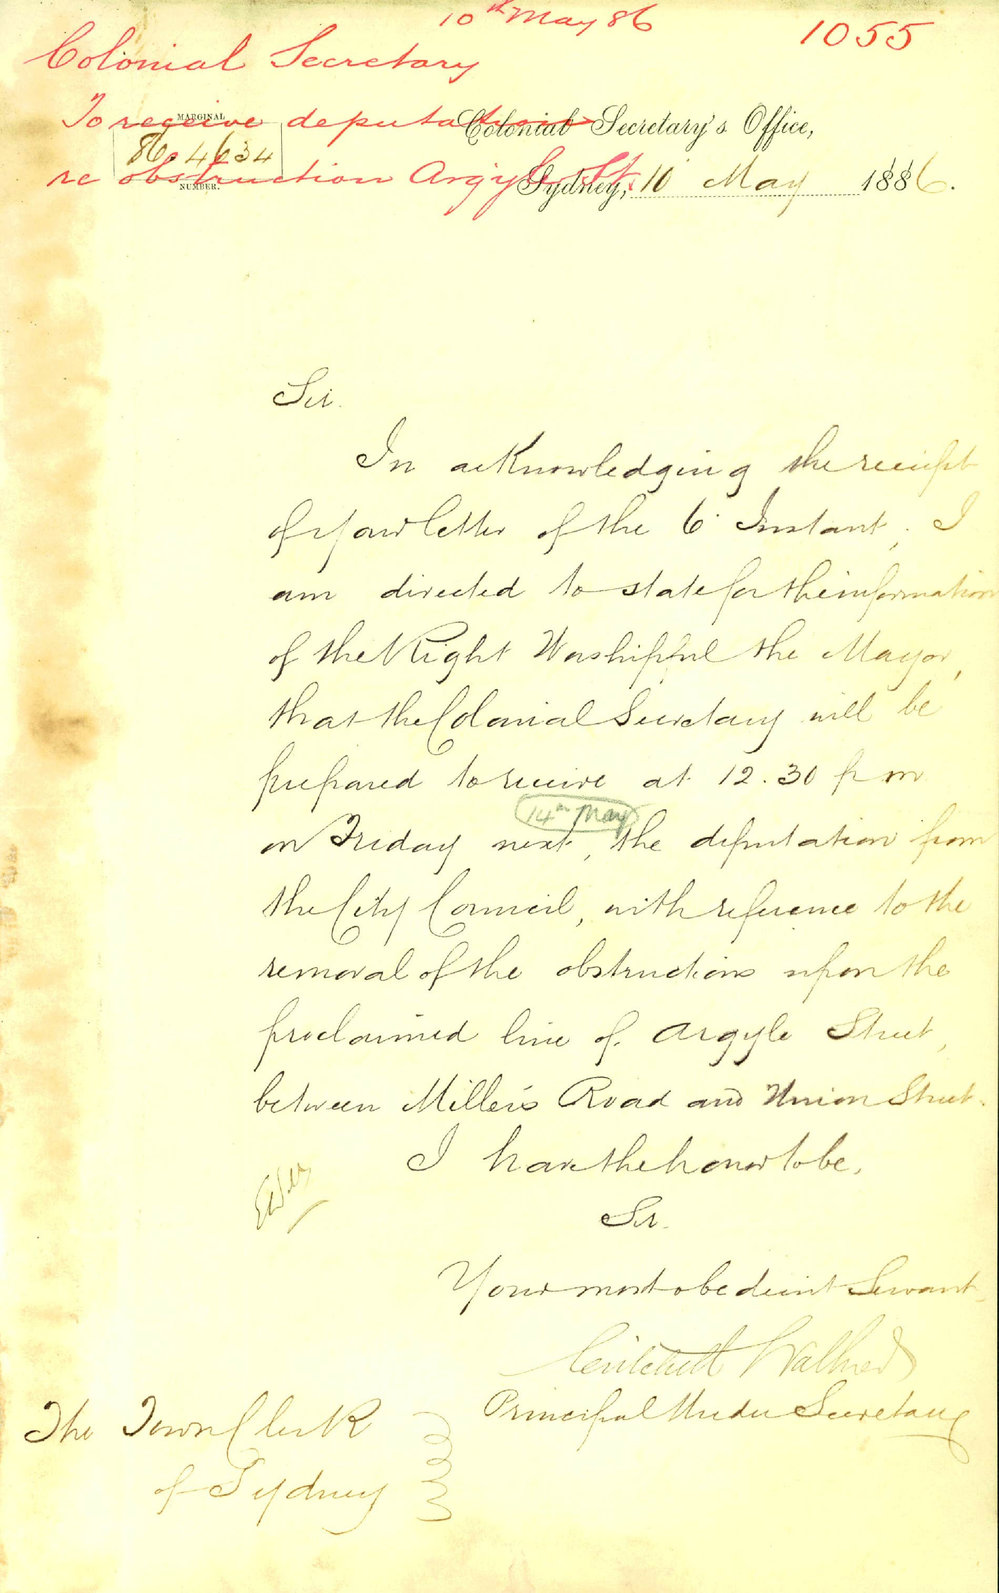 10th May 86
1055
Colonial Secretary
To receive deputation
re obstruction Argyle St.
MARGINAL
86.4634
NUMBER.
Colonial Secretary's Office,
Sydney, 10 May 1886.
Sir.
In acknowledging the receipt
of your letter of the 6th Instant, I
am directed to state for the information
of the Right Worshipful the Mayor,
that the Colonial Secretary will be
prepared to receive at 12.30 p m
14th May
on Friday next, the deputation from
the City Council, with reference to the
removal of the obstructions upon the
proclaimed line of Argyle Street,
between Miller's Road and Union Street.
I have the honor to be,
Sir.
Your most obedient Servant
Critchett Walker
Principal Under Secretary
The Town Clerk
of Sydney